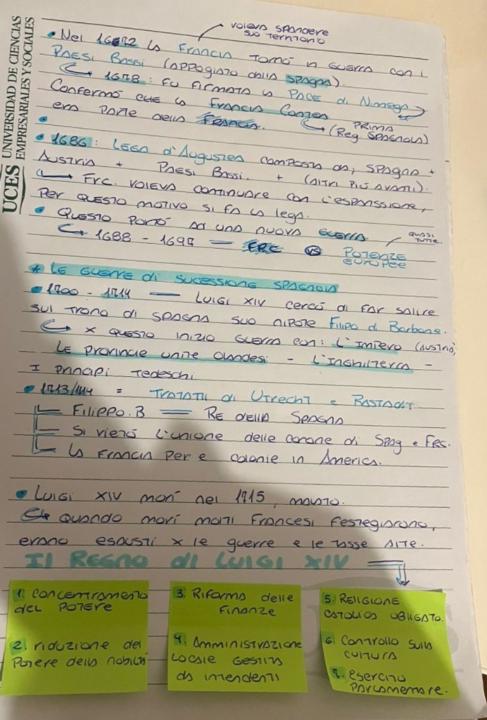 UCES UNIVERSIDAD DE CIENCIAS
EMPRESARIALES Y SOCIALES
voleva spandere
suo territorio
• Nel 1672 la Francia tornò in guerra con i
Paesi Bassi (appogiato dalla spagna)
1678: Fu firmato la Pace di Nimega
Confermó che la Franca Contea
era Parte della Francia.
PRIMA
(Reg. Spagnola)
• 1686: Lega d'Augusta composta da, spagna +
Austria + Paesi Bassi. + (altri più avanti).
Frc. voleva continuare con l'espanssione,
Per questo motivo si fa la lega.
• Questo portó ad una nuova guerra
1688 - 1698 — FRC VS Potenze
europee
quasi
tutte
* Le guerre di sucessione spagnola
• 1700 - 1714 — Luigi XIV cercó di far salire
sul trono di spagna suo nipote Filipo di Borbone.
x questo inizio guerra con: L'Impero (Austria)
Le provincie unite olandesi - L'Inghilterra -
I Principi Tedeschi
• 1713/1414 = Trattati di Utrecht e Rastadt
Filippo.B = Re della Spagna
Si vietó l'unione delle corone di Spag e Frc.
La Francia Per e colonie in America.
• Luigi XIV morí nel 1715, malato.
Quando morí molti Francesi Festegiarono,
erano esausti x le guerre e le tasse alte.
Il Regno di Luigi XIV
1. Concentramento
del Potere
2. riduzione del
Potere della nobiltà
3. Riforma delle
Finanze
4. Amministrazione
locale gestita
da intendenti
5. Religione
catolica obligato.
6. Controllo sulla
cultura
7. esercito